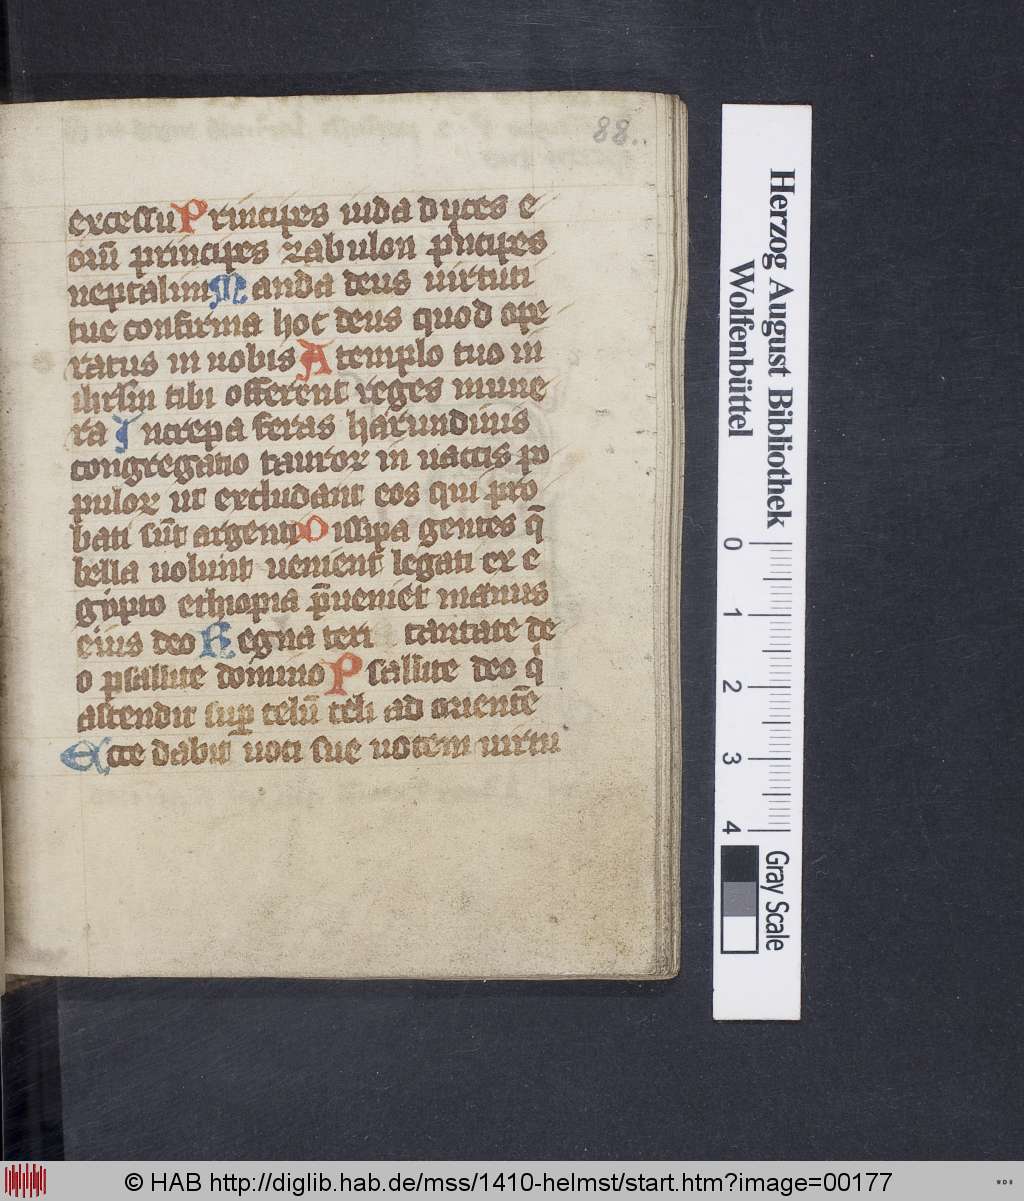 88..
excessu Principes iuda duces e
orū principes zabulon pͥncipes
neptalim Manda deus uirtuti
tue confirma hoc deus quod ope
ratus in nobis A templo tuo in
ihrl̄m tibi offerent reges mune
ra Increpa feras harundinis
congregatio tauroꝝ in uaccis po
puloꝝ ut excludant eos qui pro
bati sūt argento Dissipa gentes q̄
bella uolunt uenient legati ex e
gipto ethiopia p̄ueniet manus
eius deo Regna terre cantate de
o psallite domino Psallite deo qͥ
ascendit suꝑ celū celi ad orientē
Ecce dabit uoci sue uocem uirtu
Herzog August Bibliothek
Wolfenbüttel
0 1 2 3 4
Gray Scale
© HAB http://diglib.hab.de/mss/1410-helmst/start.htm?image=00177